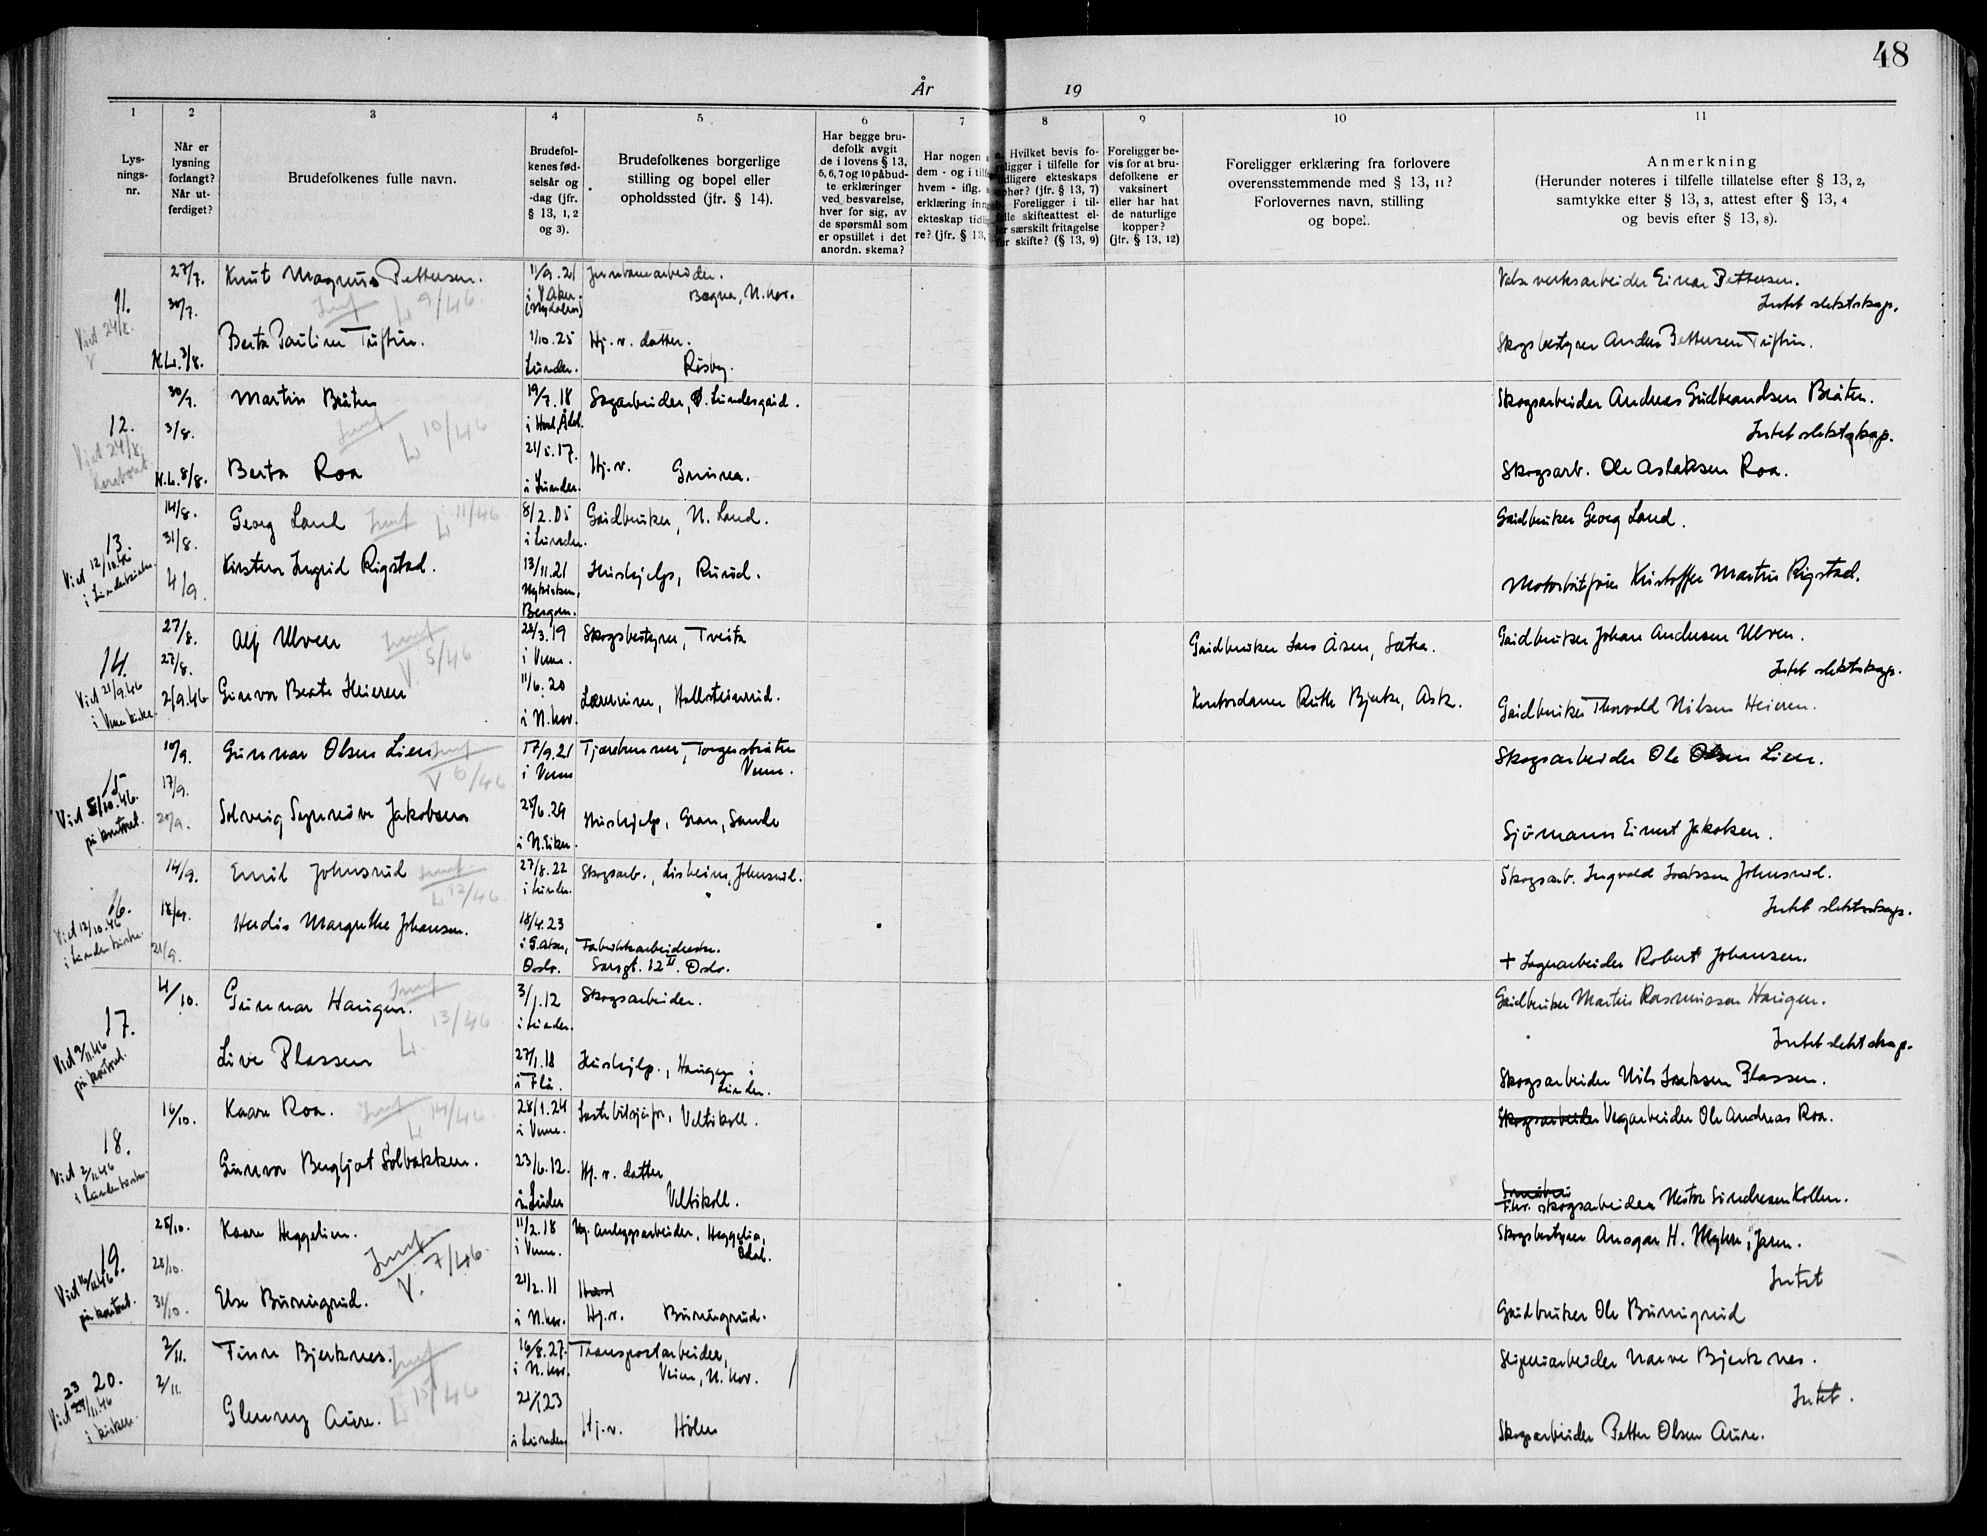 48
År 19
1
2
3
4
5
6
7
8
9
10
11
Lys-
nings-
nr.
Når er
lysning
forlangt?
Når ut-
ferdiget?
Brudefolkenes fulle navn.
Brudefol-
kenes fød-
selsår og
-dag (jfr.
§ 13, 1, 2
og 3).
Brudefolkenes borgerlige
stilling og bopel eller
opholdssted (jfr. § 14).
Har begge bru-
defolk avgit
de i lovens § 13,
5, 6, 7 og 10 påbud-
te erklæringer
ved besvarelse,
hver for sig, av
de spørsmål som
er opstillet i det
anordn. skema?
Har nogen
dem - og i tilf
hvem - iflg.
erklæring inn
ekteskap tidl
re? (jfr. § 13,
Hvilket bevis fo-
religger i tilfelle for
tidligere ekteskaps
ophør? (jfr. § 13, 7)
Foreligger i til-
felle skifteattest el-
ler særskilt fritagelse
for skifte? (§ 13, 9)
Foreligger be-
vis for at bru-
defolkene er
vaksinert
eller har hat
de naturlige
kopper?
(jfr. § 13, 12)
Foreligger erklæring fra forlovere
overensstemmende med § 13, 11?
Forlovernes navn, stilling
og bopel.
Anmerkning
(Herunder noteres i tilfelle tillatelse efter § 13, 2,
samtykke efter § 13, 3, attest efter § 13, 4
og bevis efter § 13, 8).
11.
27/7.
30/7.
N.L. 3/8.
Knut Magnus Pettersen.
L 9/46
11/9.21
i V Aker.
Jernbanearbeider.
Bagna, N.hov.
Valseverksarbeider Einar Pettersen.
Intet slektskap.
Berta Pauline Tuftin.
1/10.25
Lunder.
Hj. v. datter.
Risby.
Skogsbestyrer Anders Pettersen Tuftin.
12.
Viet 24/8.
30/7.
3/8.
N.L. 8/8.
Martin Bråten
L 10/46
19/7.18
i Hval, Ådal.
Sagarbeider, Ø. Lundesgård.
Skogsarbeider Andreas Gudbrandsen Bråten.
Intet slektskap.
Berta Roa
21/5.17.
i Lunder.
Hj. v. Grinera.
Skogsarb. Ole Aslaksen Roa.
13.
Viet 12/10.46
i Lunderkirken
14/8.
31/8.
4/9.
Georg Land
L 11/46
8/2.05
i Lunder.
Gårdbruker, N. Land.
Gårdbruker Georg Land.
Kirsten Ingrid Rigstad.
13/11.21
Nykirken,
Bergen.
Hushjelp, Rurud.
Kristoffer Martin Rigstad.
14.
Viet 21/9.46
i Viker kirke.
27/8.
27/8.
2/9.46
Alf Ulven
V. 5/46
28/3.19
i Veme.
Skogsbestyrer, Tveita
Gårdbruker Lars Åsen, Sætra.
Gårdbruker Johan Andersen Ulven.
Intet slektskap.
Gunvor Berta Heieren
11/6.20
i N.hov.
Lærerinne, Hallsteinrud.
Kontordame Ruth Bjerke, Ask.
Gårdbruker Thorvald Nilsen Heieren.
15
Viet 5/10.46.
på kontoret.
10/9.
17/9.
20/9.
Gunnar Olsen Lien
V 6/46
17/9.21
i Veme
Tjærebrenner, Torgersbråten
Veme.
Skogsarbeider Ole Olsen Lien.
Solveig Synnøve Jakobsen
25/6.29
i N.Eiker.
Hushjelp, Gran, Sande
Sjömann Einert Jakobsen.
16.
Viet 12/10.46
i Lunder kirke.
14/9.
18/9.
21/9.
Emil Johnsrud
L 12/46
27/8.22
i Lunder.
Skogsarb., Lisheim, Johnsrud.
Skogsarb. Ingvald Isaksen Johnsrud.
Intet slektskap.
Herdis Margrethe Johansen.
18/4.23
i G.Aker,
Oslo.
Fabrikkarbeiderske.
Sarsgt. 12 II. Oslo.
+ Lagerarbeider Robert Johansen.
17.
Viet 9/11.46
på kontoret.
4/10.
Gunnar Haugen.
L. 13/46
3/1.12
i Lunder.
Skogsarbeider.
Gårdbruker Martin Rasmussen Haugen.
Intet slektskap.
Live Plassen
27/1.18
i Flå.
Hushjelp., Haugen i
Lunder.
Skogsarbeider Nils Isaksen Plassen.
18.
Viet 2/11.46
i Lunder kirke.
16/10.
Kaare Roa.
L 14/46
28/1.24
i Veme.
Lastebilsjåfør, Veltikoll.
Skogsarbeider Vegarbeider Ole Andreas Roa.
Gunvor Bergljot Solbakken.
23/6.12.
i Lunder
Hj. v. datter
Veltikoll.
Fhv. skogsarbeider Nestor Sindresen Kollen.
19.
Viet 16/11.46
på kontoret.
25/10.
28/10.
31/10.
Kaare Heggelien.
V. 7/46.
11/2.18
i Veme.
Anleggsarbeider, Heggelia,
Ådal.
Skogsbestyrer Ansgar H. Myhre, Jaren.
Intet
Else Buringrud.
21/2.11
i N.hov.
Hj. v. Buringrud.
Gårdbruker Ole Buringrud
20.
Viet 23/11.46
i kirken.
2/11.
2/11
Finn Bjerknes.
L 15/46
16/8.27.
i N.hov.
Transportarbeider,
Veien, N.hov.
Sliperiarbeider Narve Bjerknes.
Intet.
Glenny Aure.
21/1 23
i Lunder.
Hj. v. Holen
Skogsarbeider Petter Olsen Aure.